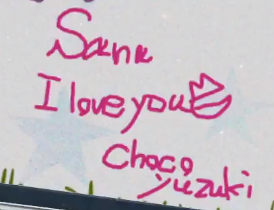 Sana
I love you
Choco
yuzuki